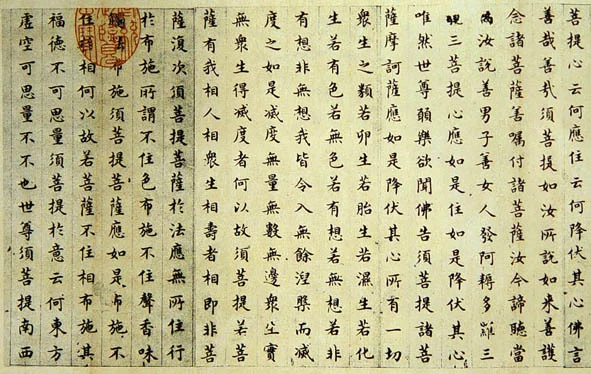 菩提心云何應住云何降伏其心佛言
善哉善哉須菩提如汝所說如来善護
念諸菩薩善囑付諸菩薩汝今諦聽當
為汝說善男子善女人發阿耨多羅三
藐三菩提心應如是住如是降伏其心
唯然世尊願樂欲聞佛告須菩提諸菩
薩摩訶薩應如是降伏其心所有一切
衆生之類若卵生若胎生若濕生若化
生若有色若無色若有想若無想若非
有想非無想我皆令入無餘涅槃而滅
度之如是滅度無量無數無邊衆生實
無衆生得滅度者何以故須菩提若菩
薩有我相人相衆生相壽者相即非菩
薩復次須菩提菩薩於法應無所住行
於布施所謂不住色布施不住聲香味
觸法布施須菩提菩薩應如是布施不
住於相何以故若菩薩不住相布施其
福德不可思量須菩提於意云何東方
虛空可思量不不也世尊須菩提南西